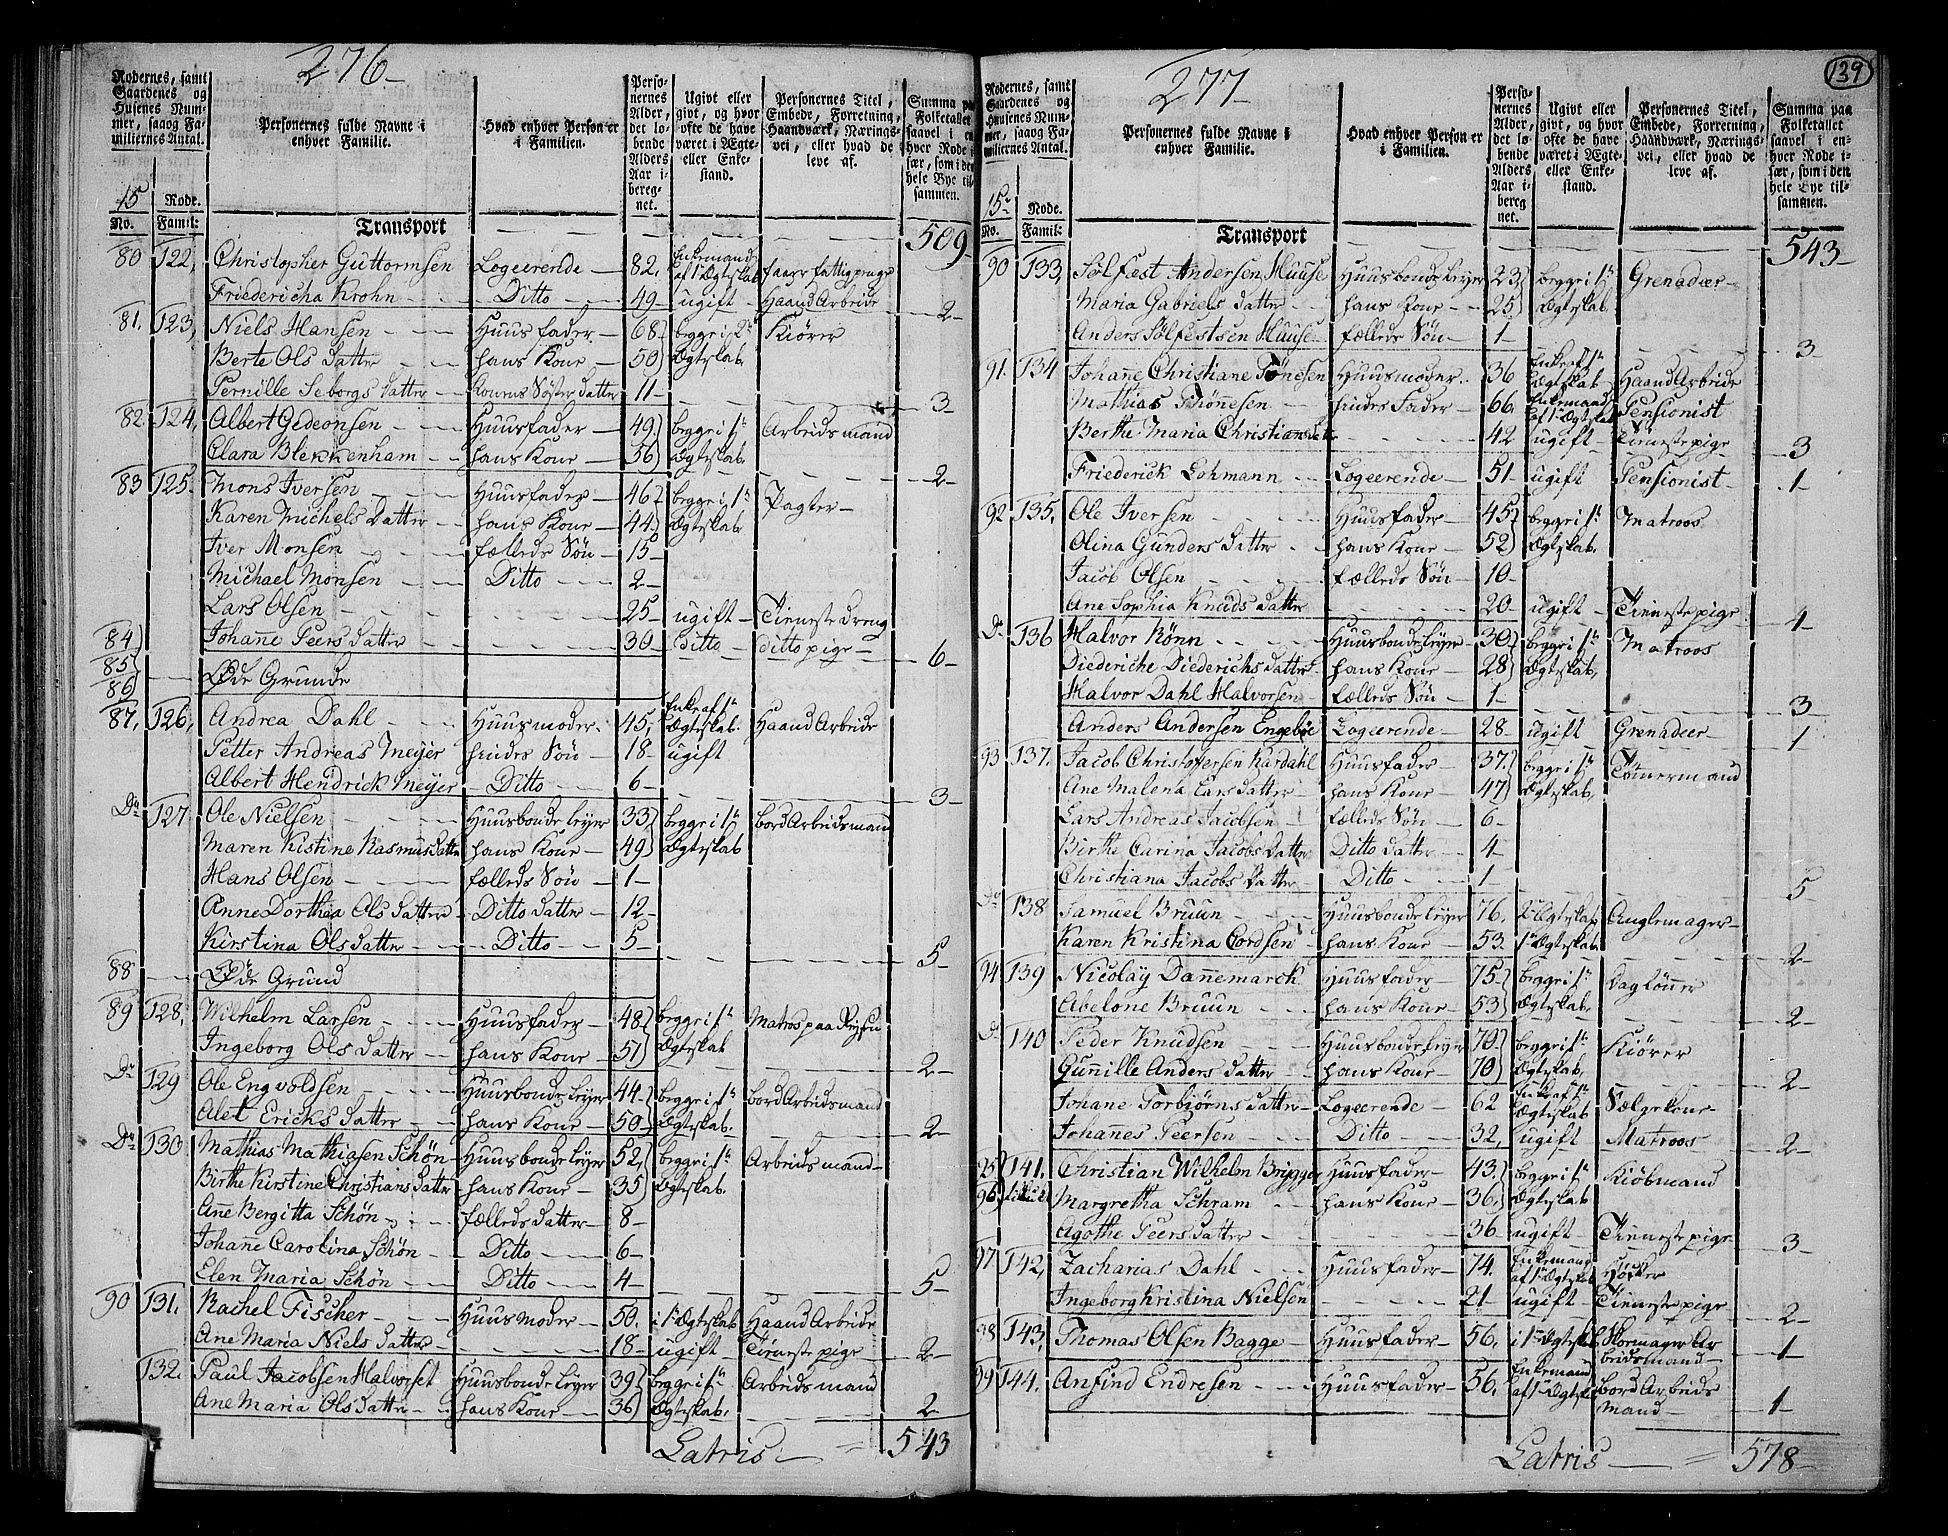 276-
Rodernes, samt Gaardenes og Husenes Nummer, saavog Familiernes Antal.
Personernes fulde Navne i enhver Familie.
Hvad enhver Person er i Familien.
Personernes Alder, det løbende Alders Aar iberegnet.
Ugivt eller givt, og hvor ofte de have været i Ægte- eller Enkestand.
Personernes Titel, Embede, Forretning, Haandværk, Næringsvei, eller hvad de leve af.
Summa paa Folketallet
15 Rode.
No. Famil:
Transport 509-
80 122, Christopher Guttormsen Logeerende 82, Enkemand af 1te Ægteskab faaer fattigpenge
Friedericha Krohn Ditto 49 ugift Haand Arbeide 2
81. 123, Niels Hansen Huusfader 68 begge i 2det Kiører
Berte Ols Datter hans Kone 50 Ægteskab.
Pernille Seborgs Datter Konens Søster datter 11 3
82. 124, Albert Gedeonsen Huusfader 49 begge i 1te Arbeidsmand
Clara Blekkenham hans Kone 56 Ægteskab. 2
83 125. Mons Iversen Huusfader 46 begge i 1te Pagter
Karen Michels Datter hans Kone 44 Ægteskab.
Iver Monsen fælleds Søn 15
Michael Monsen Ditto 2
Lars Olsen 25 ugift Tieneste dreng
84) Johanne Peers Datter 30 Ditto ditto pige 6
85)
86) Øde Grunde
87, 126, Andrea Dahl Huusmoder 45, Enke af 1te Ægteskab. Haand Arbeide
Petter Andreas Meyer hendes Søn 18 ugift
Albert Hendrick Meyer Ditto 6 3
Do 127 Ole Nielsen Huusbonde leyer 33 begge i 1te bord Arbeidsmand
Maren Kistine Rasmusdatter hans Kone 49 Ægteskab
Hans Olsen fælleds Søn 1
Anne Dorthea Olsdatter Ditto datter 12
Kirstina Olsdatter Ditto 5 5
88 Øde Grund
89 128, Wilhelm Larsen Huusfader 48 begge i 1te Matros paa Reysen
Ingeborg Olsdatter hans Kone 51) Ægteskab 2
Do 129 Ole Engvoldsen Huusbonde leyer 44 begge i 1te bord Arbeidsmand
Alet Ericks datter hans Kone 50 Ægteskab. 2
Do 130 Mathias Mathiasen Schön Huusbonde leyer 52, begge i 1te Arbeidsmand
Birthe Kirstine Christians datter hans Kone 35) Ægteskab.
Ane Bergitta Schön fælleds datter 8
Johanne Carolina Schön Ditto 6
Elen Maria Schön Ditto 4 5
90 131. Rachel Fischer Huusmoder 50. i 1te Ægteskab Haand Arbeide
Ane Maria Niels datter 18 ugift Tieneste pige 2
132. Paul Jacobsen Halvorset Huusbonde leyer 39) begge i 1te Arbeidsmand
Ane Maria Ols datter hans Kone 36) Ægteskab. 2
Latris = 543
277
139
Rodernes, samt Gaardenes og Husenes Nummer, saavog Familiernes Antal.
Personernes fulde Navne i enhver Familie.
Hvad enhver Person er i Familien.
Personernes Alder, det løbende Alders Aar iberegnet.
Ugivt eller givt, og hvor ofte de have været i Ægte- eller Enkestand.
Personernes Titel, Embede, Forretning, Haandværk, Næringsvei, eller hvad de leve af.
Summa paa Folketallet saavel i enhver Rode især, som i den hele Bye tilsammen.
15de Rode.
No. Famil:
Transport 543
90 133, Sølfest Andersen Huuse Huusbonde leyer 23 begge i 1te Grenadeer
Maria Gabriels datter hans Kone 25 Ægteskab.
Anders Sølfestsen Huuse fælleds Søn 1 3
91. 134 Johanne Christiane Tönesen Huusmoder 36 Enke af 1te Ægteskab Haand Arbeide
Mathias Thönesen hendes Fader 66 Enkemand af 1te Ægteskab Pensionist
Berthe Maria Christians datter 42 ugift Tieneste pige 3
Friederick Lohmann Logeerende 51 ugift Pensionist 1
92 135, Ole Iversen Huusfader 45 begge i 1te Matroos
Olina Gunders datter hans Kone 52 Ægteskab.
Jacob Olsen fælleds Søn 10
Ane Sophia Knuds datter 20 ugift Tieneste pige 4
Do 136 Halvor Rönn Huusbonde leyer 30 begge i 1te Matroos
Diederiche Diederichs datter hans Kone 28 Ægteskab.
Halvor Dahl Halvorsen fælleds Søn 1 3
Anders Andersen Engebøe Logeerende 28 ugift Grenadeer 1
93 137. Jacob Christophersen Kardahl Huusfader 37. begge i 1te Tömermand
Ane Malena Lars datter hans Kone 47 Ægteskab.
Lars Andreas Jacobsen fælleds Søn 6
Birthe Carina Jacobs datter Ditto datter 4
Christiana Jacobs datter Ditto 1 5
Do 138 Samuel Bruun Huusbonde leyer 76. Ægteskab Anglemager
Karen Kristina Cordsen hans Kone 53. 1te Ægteskab. 2
94 139 Nicolaÿ Dannemarck Huusfader 75 begge i 1te Daglönner
Abelone Bruun hans Kone 53) Ægteskab. 2
Do 140 Peder Knudsen Huusbonde leyer 70 begge i 1te Kiörer
Gunnille Anders datter hans Kone 70) Ægteskab. 2
Johane Torbiörns datter Logeerende 62 Enke af 1te Ægteskab Sælgekone
Johannes Peersen Ditto 32, ugift Matroos 2
95) 141. Christian Wilhelm Brygger Huusfader 43. begge i 1te Kiöbmand
96) Margretha Schram hans Kone 36. Ægteskab
Agothe Peers datter 36 ugift Tieneste pige 3
97 142, Zacharias Dahl Huusfader 74. Enkemand af 1te Ægteskab Höker
Ingeborg Kristina Nielsen 21 ugift Tieneste pige 2
98 143, Thomas Olsen Bagge Huusfader 56. i 1te Ægteskab Skomager Arbeidsmand 1
99 144. Anfind Endresen Huusfader 56. Enkemand af 1te Ægtesk. bord Arbeidsmand 1
Latris = 578